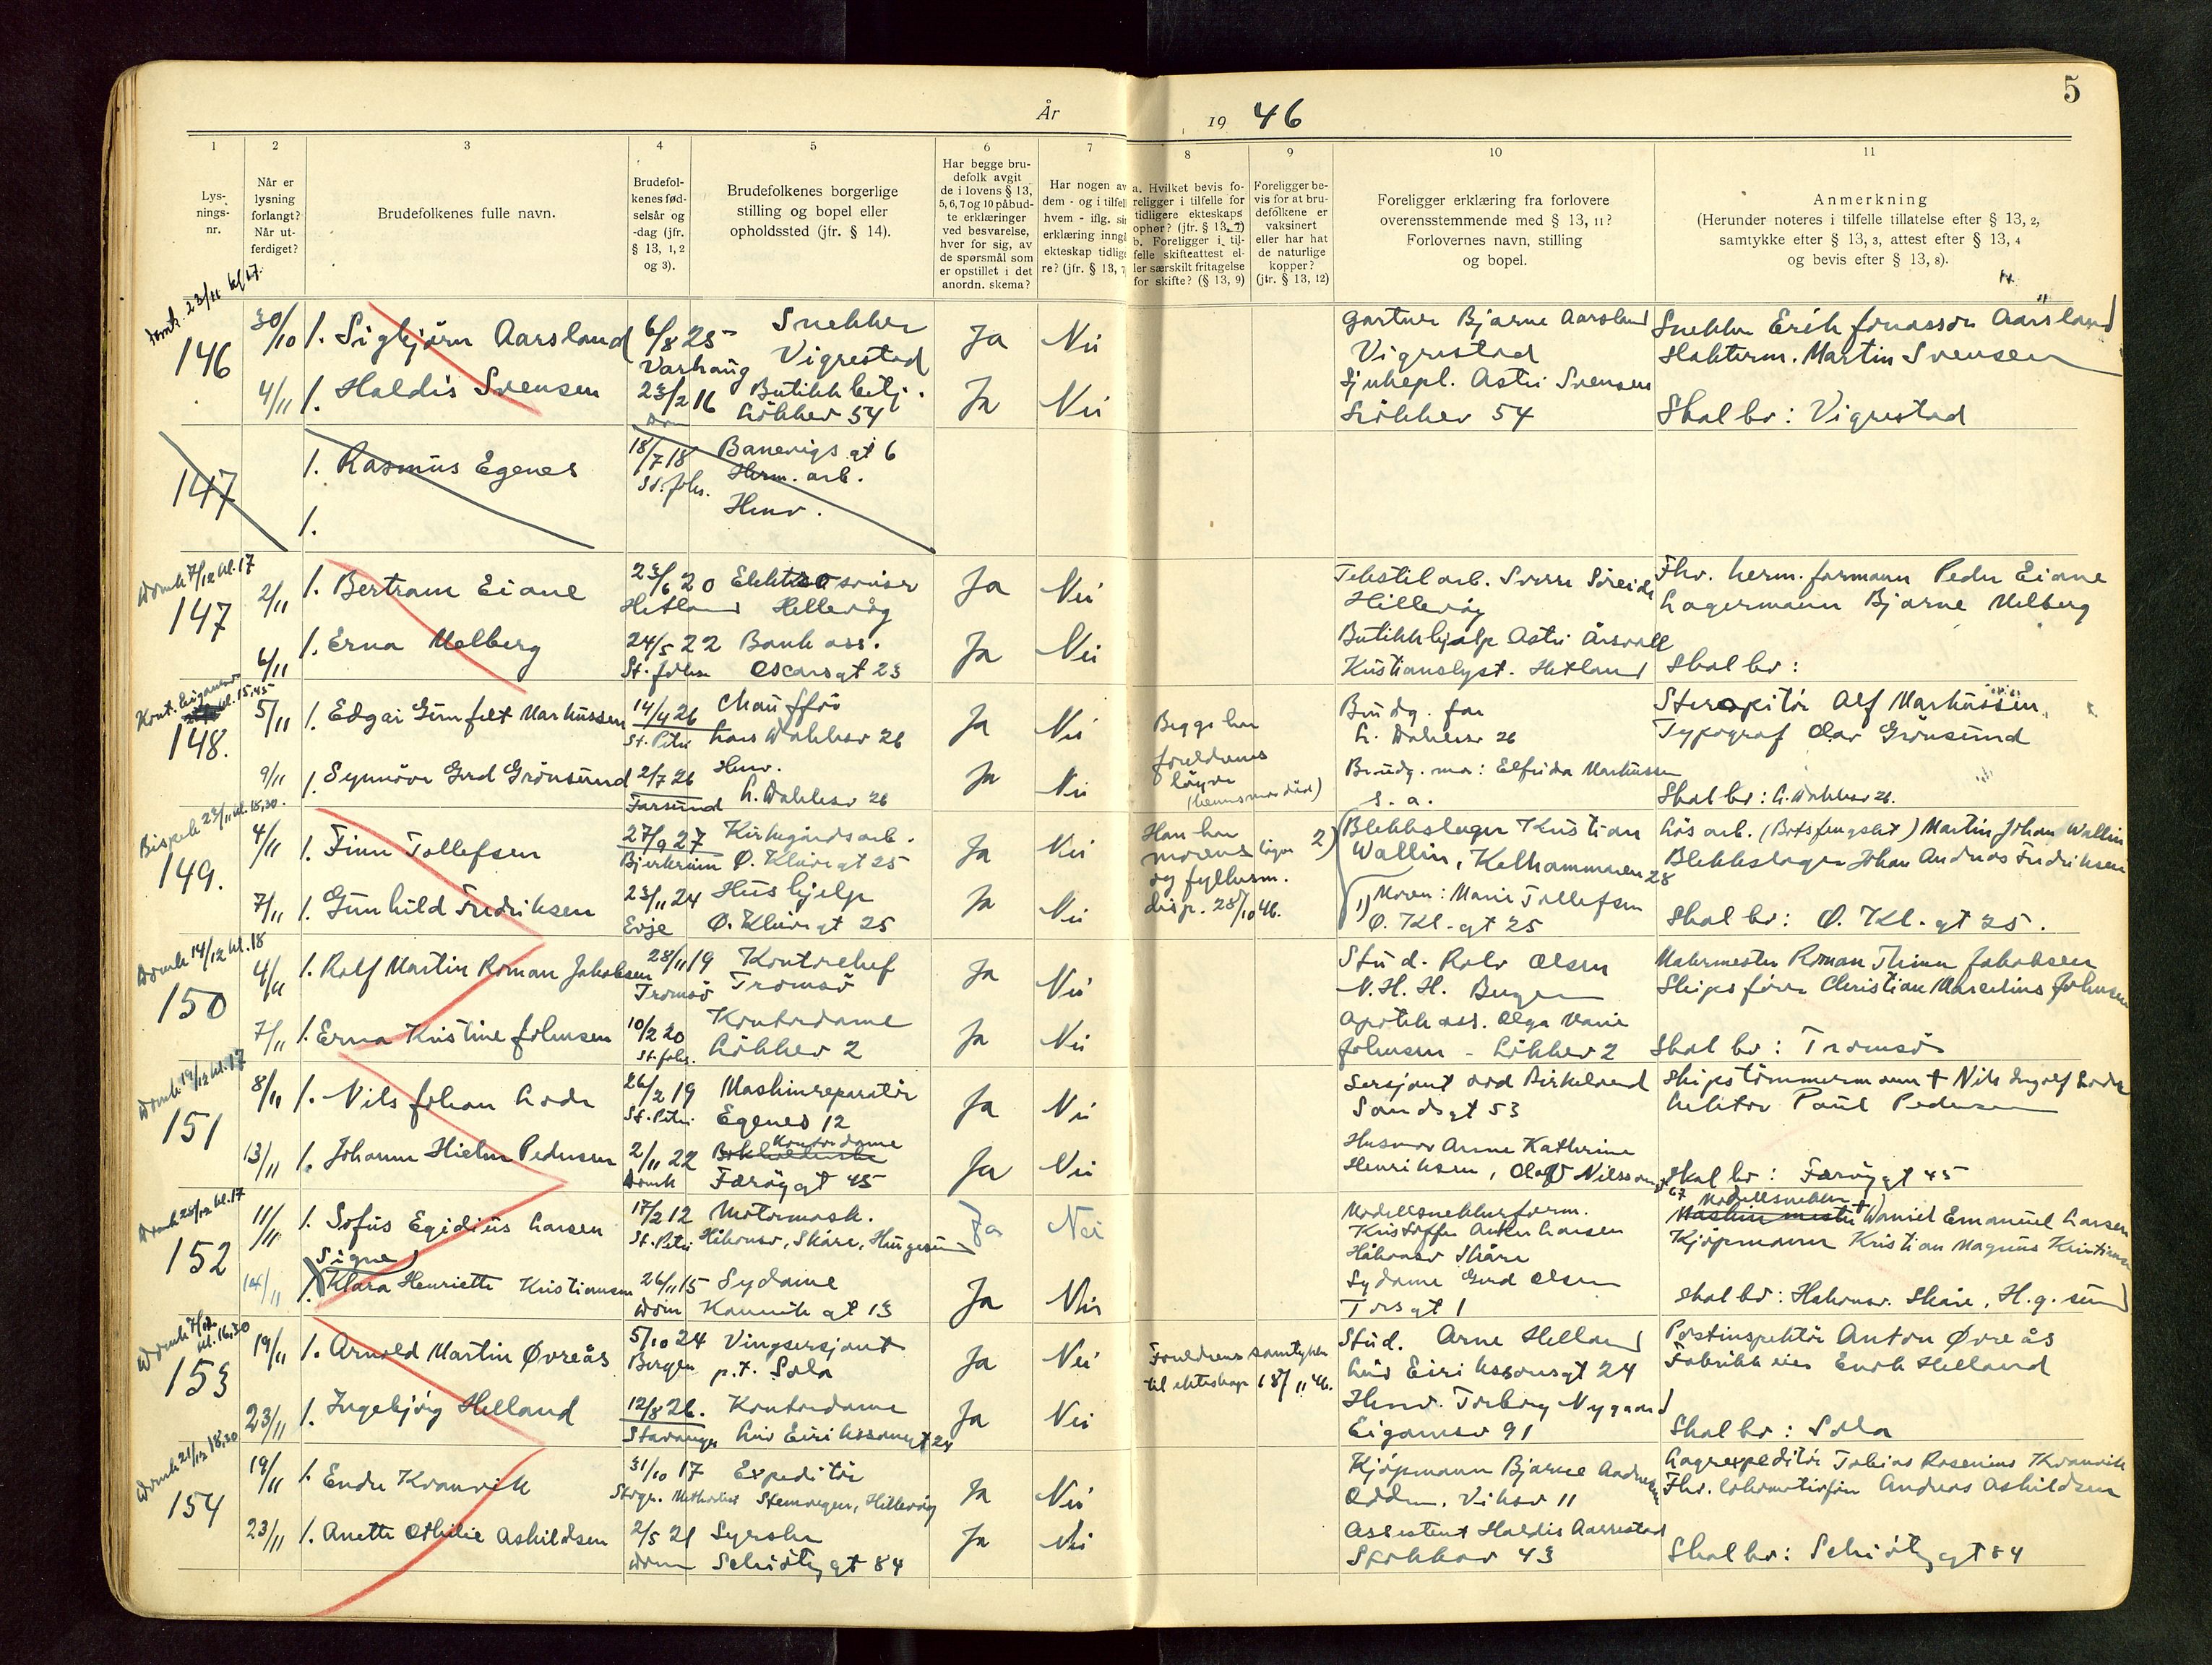 5
År 19 46
1
Lys-
nings-
nr.
2
Når er
lysning
forlangt?
Når ut-
ferdiget?
3
Brudefolkenes fulle navn.
4
Brudefol-
kenes fød-
selsår og
-dag (jfr.
§ 13, 1, 2
og 3).
5
Brudefolkenes borgerlige
stilling og bopel eller
opholdssted (jfr. § 14).
6
Har begge bru-
defolk avgit
de i lovens § 13,
5, 6, 7 og 10 påbud-
te erklæringer
ved besvarelse,
hver for sig, av
de spørsmål som
er opstillet i det
anordn. skema?
7
Har nogen av
dem - og i tilfelle
hvem - iflg. sin
erklæring inngå
ekteskap tidlige
re? (jfr. § 13, 7
8
a. Hvilket bevis fo-
religger i tilfelle for
tidligere ekteskaps
ophør? (jfr. § 13, 7)
b. Foreligger i til-
felle skifteattest el-
ler særskilt fritagelse
for skifte? (§ 13, 9)
9
Foreligger be-
vis for at bru-
defolkene er
vaksinert
eller har hat
de naturlige
kopper?
(jfr. § 13, 12)
10
Foreligger erklæring fra forlovere
overensstemmende med § 13, 11?
Forlovernes navn, stilling
og bopel.
11
Anmerkning
(Herunder noteres i tilfelle tillatelse efter § 13, 2,
samtykke efter § 13, 3, attest efter § 13, 4
og bevis efter § 13, 8).
Domk. 23/11 kl 17.
146
30/10 1. Sigbjörn Aarsland 6/8 25 Snekker Ja Nei Gartner Bjarne Aarsland Snekker Erik Jonassen Aarsland
Varhaug Vigrestad Vigrestad Hakterm. Martin Svensen
4/11 1. Haldis Svensen 23/2 16 Butikkbetj. Ja Nei Sjukepl. Astri Svensen
Dom Lökkev 54 Lökkev 54 Skal bo: Vigrestad
147 1. Rasmus Egenes 18/7 18 Banevigs gt 6
St. Johs. Herm. arb.
1. Hmv.
Domk 7/12 kl. 17
147
2/11 1. Bertram Eiane 23/6 20 Ja Nei Tekstilarb. Sverre Söreide Fhv. herm. formann Peder Eiane
Hetland Hillevåg Hillevåg Lagermann Bjarne Melberg
6/11 1. Erna Melberg 24/5 22 Bank ass. Ja Nei Butikkhjelp Astri Årsvoll
St. Johs Oscarsgt 23 Kristianslyst. Hetland Skal bo:
kl. 15.45
148.
5/11 1. Edgar Gunfelt Markussen 14/4 26 Chaufför Ja Nei Begge har Brudg. far Alf Markussen
St. Petri Lars Wahlsv 26 foreldrenes L. Wahlsv 26 Typograf Olav Grönsund
9/11 1. Synnöve Gerd Grönsund 2/7 26 Hmv. Ja Nei Brudg. mor: Elfrida Markussen
Farsund L. Wahlsv 26 s. a. Skal bo: L. Wahlsv 26.
Bispek 23/11 kl. 18.30.
149.
4/11 1. Finn Tollefsen 27/9 27 Kirkegårdsarb. Ja Nei Han har 2) Blikkslager Kristian Lös arb. (Botsfengslet) Martin Johan Wallin
Bjerkreim Ø. Kleivegt 25 morens Wallin, Kelhammaren 28 Blikkslager Johan Andreas Fredriksen
7/11 1. Gunhild Fredriksen 23/11 24 Hushjelp Ja Nei og fylkesm. 1) Moren: Marie Tollefsen
Evje Ø. Kleivegt 25 disp. 28/10 46. Ø. Kl.-gt 25 Skal bo: Ø. Kl.-gt 25.
Domk 14/12 kl. 18
150
4/11 1. Rolf Martin Roman Jakobsen 28/11 19 Kontorchef Ja Nei Stud. Rolv Olsen Malermester Roman Jakobsen
Tromsö Tromsö N. H. H. Bergen Skipsförer Christian Marselius Johnsen
7/11 1. Erna Kristine Johnsen 10/2 20 Kontordame Ja Nei Apotek ass. Olga Marie
St. Johs. Lökkev 2 Johnsen - Lökkev 2 Skal bo: Tromsö
Domk 19/12 kl. 17
151
8/11 1. Nils Johan Lode 26/2 19 Maskinreparatör Ja Nei Sersjant Odd Birkeland Skipstömmermann † Nils Ingolf Lode
St. Petri Egenes 12 Sandsgt 53 Paul Pedersen
13/11 1. Johanne Hielm Pedersen 2/11 22 Kontordame Ja Nei Husmor Anne Kathrine
Domk Færöygt 45 Henriksen, Olaf Nilssonsgt 67 Skal bo: Færöygt 45
Domk 25/12 kl. 17
152
11/11 1. Sofus Egidius Larsen 17/2 12 Motormask. Ja Nei Modellsnekkerform. Modellsnekker
St. Petri Håkonsv, Skåre, Haugesund Kristoffer Anker Larsen Maskinmester † Daniel Emanuel Larsen
Signe Håkonsv Skåre Kjöpmann Kristian Magnus Kristiansen
14/11 1. Klara Henriette Kristiansen 26/11 15 Sydame Ja Nei Sydame Gerd Olsen
Dom Kannik gt 13 Torsgt 1 Skal bo: Håkonsv. Skåre, H.g.sund
Domk 7/12 kl. 16.30
153
19/11 1. Arnold Martin Øvreås 5/10 24 Vingsersjant Ja Nei Foreldrenes samtykke Stud. Arne Helland Postinspektör Anton Øvreås
Bergen p.t. Sola til ekteskap 18/11 46. Leiv Eirikssonsgt 24 Fabrikkeier Endre Helland
23/11 1. Ingebjörg Helland 12/8 26. Kontordame Ja Nei Hmv. Torborg Nygaard
Stavanger Leiv Eirikssonsgt 24 Eiganesv 91 Skal bo: Sola
Domk 21/12 18.30
154
19/11 1. Endre Kvanvik 31/10 17 Expeditör Ja Nei Kjöpmann Bjarne Lagerexpeditör Tobias Rosenius Kvanvik
Stvgr. Methodist Stemvegen, Hillevåg Vikev 11 Fhv. lokomotivförer Andreas Askildsen
23/11 1. Anette Othilie Askildsen 2/5 21 Syerske Ja Nei Assistent Haldis Aarrestad
Dom Schiötzgt 84 43 Skal bo: Schiötzgt 84